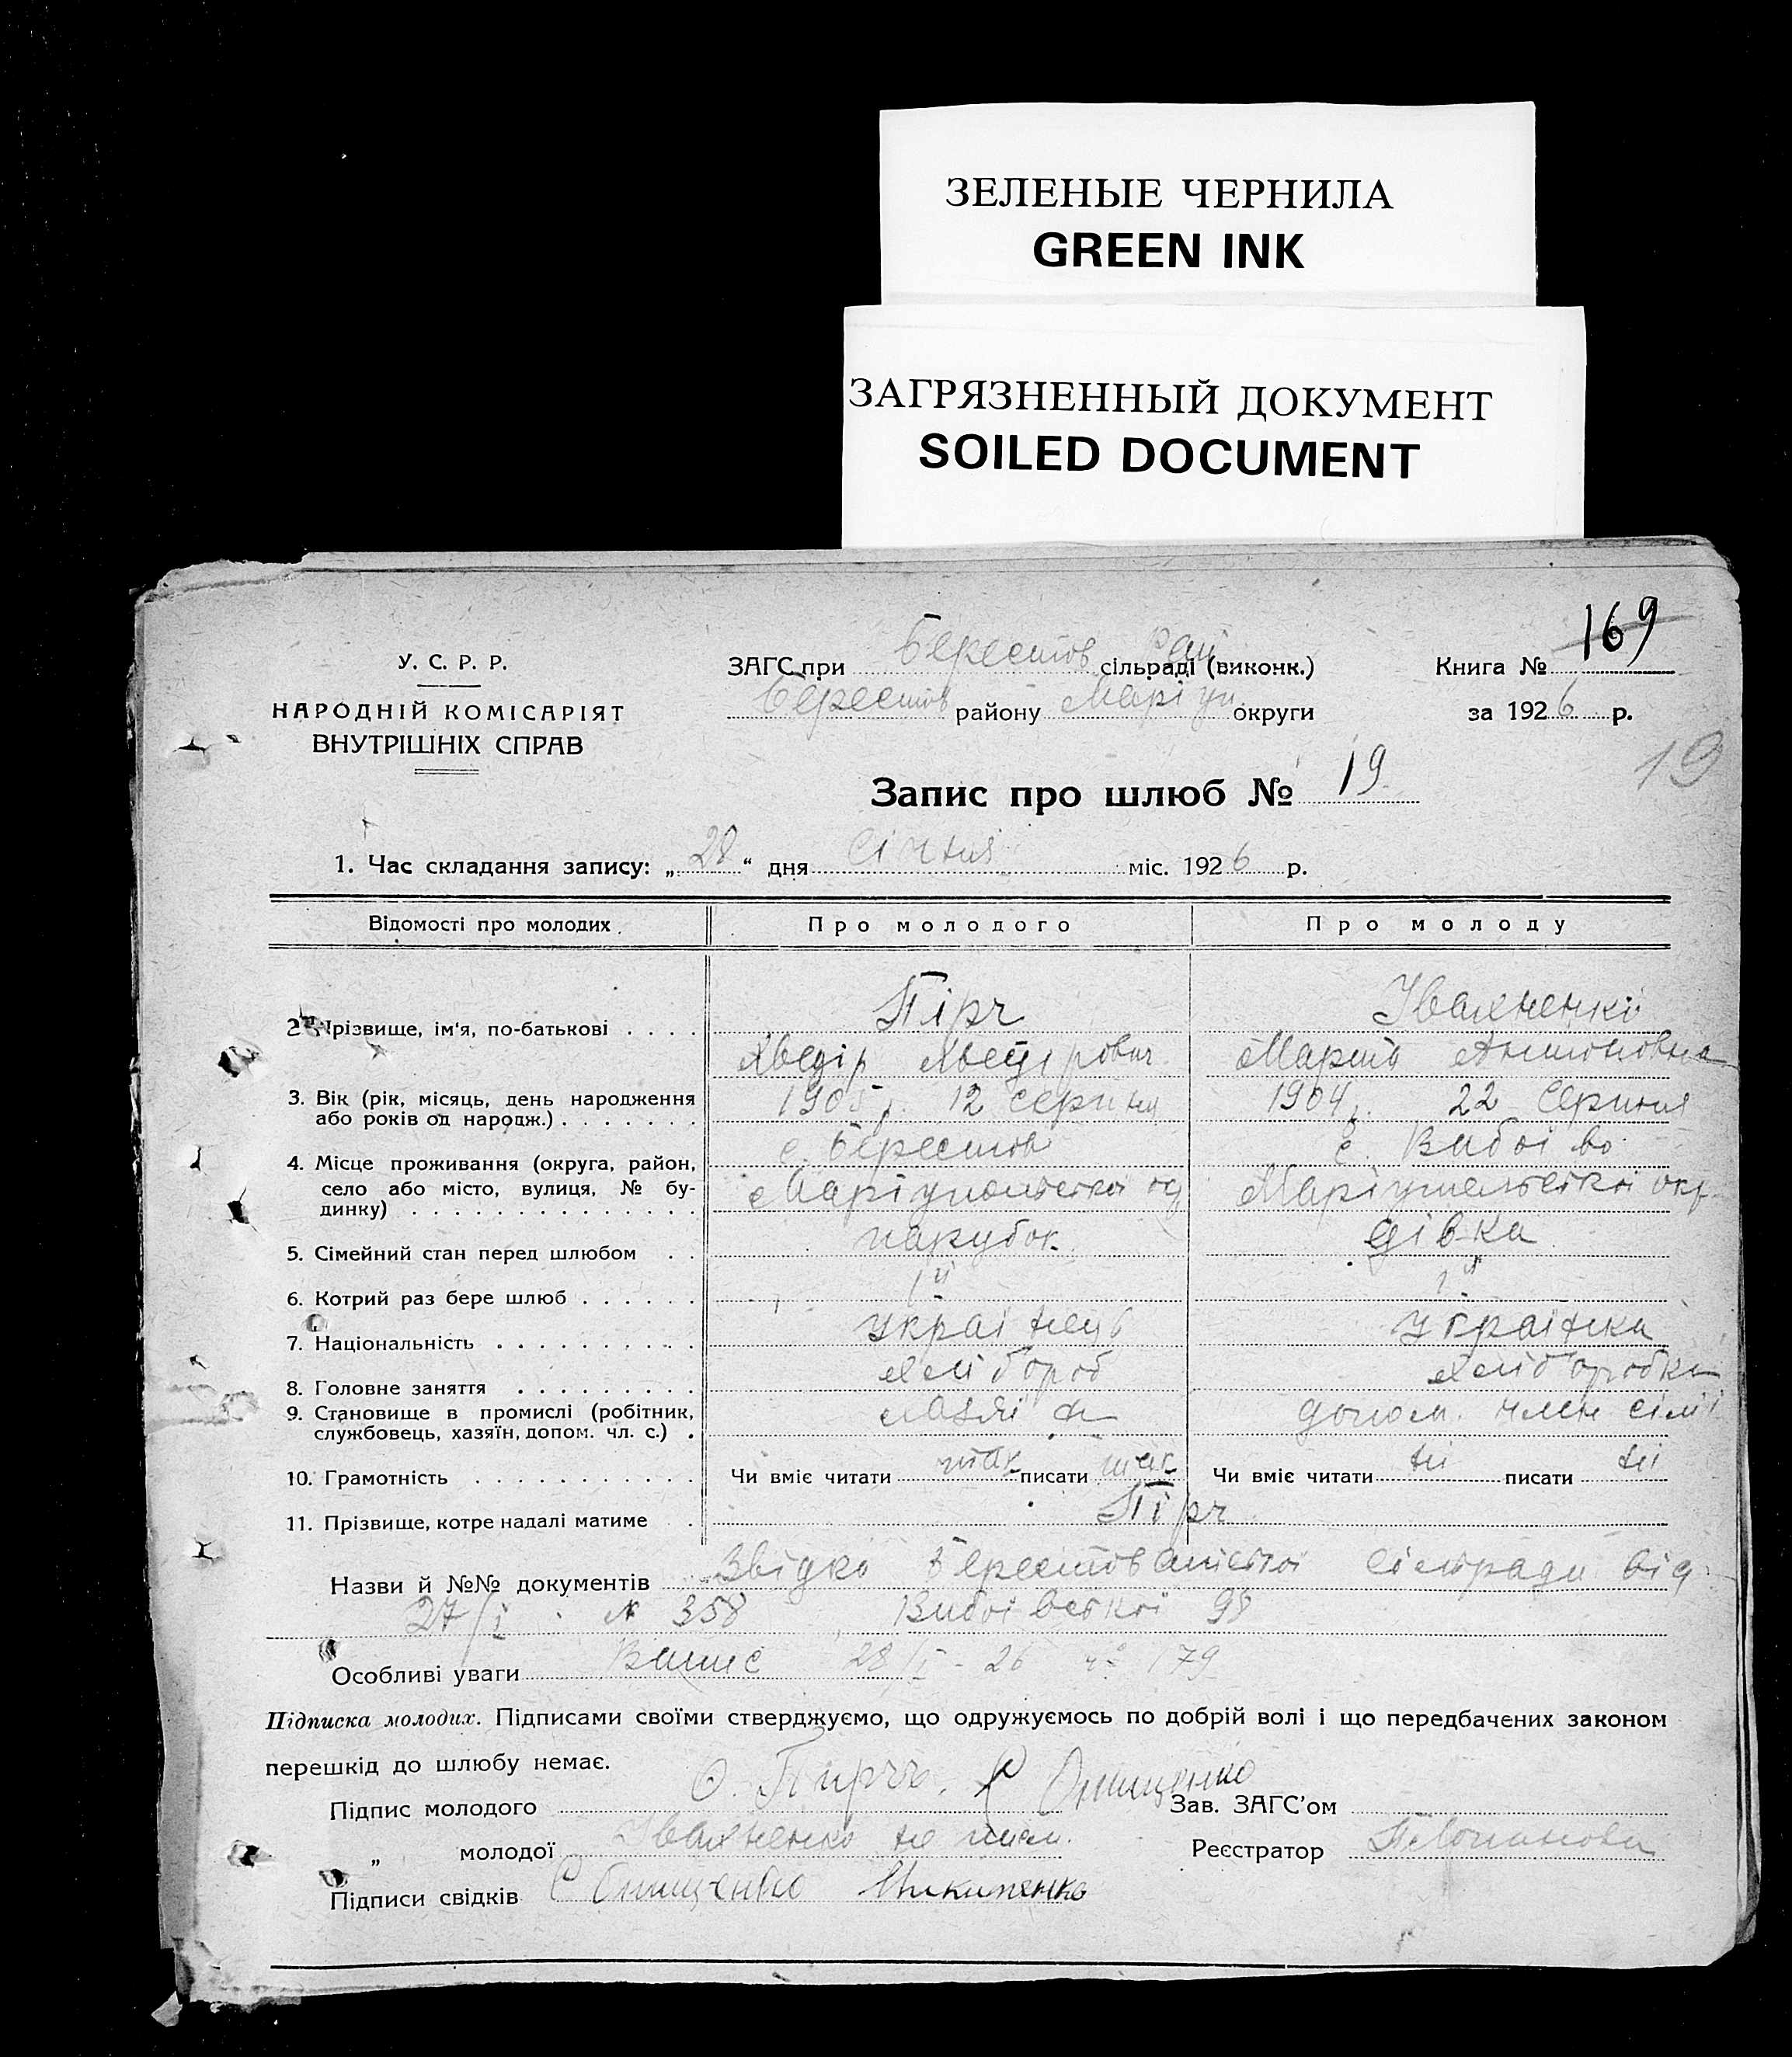 ЗЕЛЕНЫЕ ЧЕРНИЛА
GREEN INK
ЗАГРЯЗНЕННЫЙ ДОКУМЕНТ
SOILED DOCUMENT
169
У. С. Р. Р.
НАРОДНІЙ КОМІСАРІЯТ
ВНУТРІШНІХ СПРАВ
ЗАГС при Берестов Рай сільраді (виконк.)
Берестов району Маріуп округи
Книга №
за 1926 р.
19
Запис про шлюб № 19
1. Час складання запису: „28“ дня Січня міс. 1926 р.
Відомості про молодих. Про молодого Про молоду
2. Прізвище, ім'я, по-батькові . . . . Пірч Іваненко
Хведір Хведірович Марта Антоновна
3. Вік (рік, місяць, день народження 1905 р. 12 серпня 1904 р. 22 Серпня
або років од народж.) . . . . . . .
с. Берестов с.
4. Місце проживання (округа, район,
село або місто, вулиця, № бу- Маріупольської Маріупольської окр
динку) . . . . . . . . . . . . . .
5. Сімейний стан перед шлюбом . . парубок дівка
6. Котрий раз бере шлюб . . . . . . 1й 1й
7. Національність . . . . . . . . . . Українець Українка
8. Головне заняття . . . . . . . . . Хлібороб Хлібопробка
9. Становище в промислі (робітник, хазяїн допом. член сімї
службовець, хазяїн, допом. чл. с.) .
10. Грамотність . . . . . . . . . . . Чи вміє читати так писати так Чи вміє читати ні писати ні
11. Прізвище, котре надалі матиме . Пірч
Назви й №№ документів Берестов Сільради від
27/I № 358 98
Особливі уваги 28/I - 26 179
Підписка молодих. Підписами своїми стверджуємо, що одружуємось по добрій волі і що передбачених законом
перешкід до шлюбу немає.
Підпис молодого Ѳ. Пирчъ. С Онищенко Зав. ЗАГС'ом
„ молодої Іваненко не писм. Реєстратор
Підписи свідків С Онищенко Никитенко